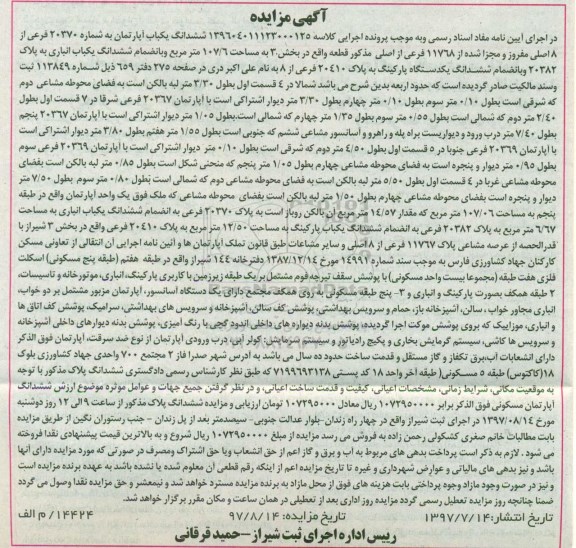 آگهی مزایده
در اجرای آیین نامه مفاد اسناد رسمی وبه موجب پرونده اجرایی کلاسه ۱۳۹۶۰۴۰۱۱۱۲۳۰۰۰۱۲۵ ششدانگ یکباب آپارتمان به شماره ۲۰۳۷۰ فرعی از
۸ اصلی مفروز و مجزا شده از ۱۱۷۶۸ فرعی از اصلی مذکور قطعه واقع در بخش۳ به مساحت ۱۰۷/۶ متر مربع وبانضمام ششدانگ یکباب انباری به پلاک
۲۰۳۸۲ وبانضمام ششدانگ یکدستگاه پارکینگ به پلاک ۲۰۴۱۰ فرعی از ۸ به نام علی اکبر دری در صفحه ۲۷۵ دفتر ۶۵۹ ذیل شماره ۱۱۳۸۴۹ ثبت
وسند مالکیت صادر گردیده است که حدود اربعه بدین شرح می باشد شمالا در ۴ قسمت اول بطول ۳/۳۰ متر لبه بالکن است به فضای محوطه مشاعی دوم
که شرقی است بطول ۰/۱۰ متر سوم بطول ۰/۱۰ متر چهارم بطول ۳/۳۰ متر دیوار اشتراکی است با آپارتمان ۲۰۳۶۷ فرعی شرقا در ۷ قسمت اول بطول
۲/۴۰ متر دوم که شمالی است بطول ۰/۵۵ متر سوم بطول ۱/۳۵ متر چهارم که شمالی است.بطول ۱/۰۵ متر دیوار اشتراکی است با آپارتمان ۲۰۳۶۷ پنجم
بطول ۷/۴۰ متر درب ورود و دیواریست براه پله و راهرو و آسانسور مشاعی ششم که جنوبی است بطول ۱/۵۵ متر هفتم بطول ۳/۸۰ متر دیوار اشتراکی است
با آپارتمان ۲۰۳۶۹ فرعی جنوبا در ۵ قسمت اول بطول ۴/۵۰ متر دوم که شرقی است بطول ۰/۱۰ متر دیوار اشتراکی است با آپارتمان ۲۰۳۶۹ فرعی سوم
بطول ۰/۹۵ متر دیوار و پنجره است به فضای محوطه مشاعی چهارم بطول ۱/۰۵ متر پنجم که منحنی شکل است بطول ۰/۸۵ متر لبه بالکن است بفضای
محوطه مشاعی غربا در ۴ قسمت اول بطول ۵/۵۰ متر لبه بالکن است به فضای محوطه مشاعی دوم که شمالی است بطول ۰/۸۰ متر سوم بطول ۷/۵۰ متر
دیوار و پنجره است بفضای محوطه مشاعی چهارم بطول ۱/۰۰ متر لبه بالکن است بفضای محوطه مشاعی که ملک فوق یک واحد آپارتمان واقع در طبقه
پنجم به مساحت ۱۰۷/۰۶ متر مربع که مقدار ۱۴/۵۷ متر مربع آن بالکن روباز است به پلاک ۲۰۳۷۰ فرعی به انضمام ششدانگ یکباب انباری به مساحت
۶/۶۷ متر مربع به پلاک ۲۰۳۸۲ فرعی به انضمام ششدانگ یکباب پارکینگ به مساحت ۱۲/۵۰ متر مربع به پلاک ۲۰۴۱۰ فرعی واقع در بخش ۳ شیراز با
قدرالحصه از عرصه مشاعی پلاک ۱۱۷۶۷ فرعی از ۸ اصلی و سایر مشاعات طبق قانون تملک آپارتمان ها و آئین نامه اجرایی آن انتقالی از تعاونی مسکن
کارکنان جهاد کشاورزی فارس به موجب سند شماره ۱۴۹۹۱ مورخ ۱۳۸۷/۱۲/۱۴ دفترخانه ۱۴۴ شیراز واقع در طبقه هفتم (طبقه پنج مسکونی) اسکلت
فلزی هفت طبقه (مجموعا بیست واحد مسکونی) با پوشش سقف تیرچه فوم مشتمل بر یک طبقه زیرزمین با کاربری پارکینگ، انباری، موتورخانه و تاسیسات،
۲ طبقه همکف بصورت پارکینگ و انباری و ۳- پنج طبقه مسکونی به روی همکف مجتمع دارای یک دستگاه آسانسور، آپارتمان مزبور مشتمل بر دو خواب،
انباری مجاور خواب، سالن، آشپزخانه باز، حمام و سرویس بهداشتی، پوشش کف سالن، آشپزخانه و سرویس های بهداشتی، سرامیک، پوشش کف اتاق ها
و انباری، موزاییک که بروی پوشش موکت اجرا گردیده، پوشش بدنه دیواره های داخلی اندود گچی با رنگ آمیزی، پوشش بدنه دیوارهای داخلی آشپزخانه
و سرویس ها کاشی، سیستم گرمایش بخاری و پکیج رادیاتور و سیستم سرمایش کولر آبی، درب ورودی آپارتمان از نوع ضد سرقت، آپارتمان فوق الذکر
دارای انشعابات آب،برق تکفاز و گاز مستقل و قدمت ساخت حدود ده سال می باشد به آدرس شهر صدرا فاز ۲ مجتمع ۷۰۰ واحدی جهاد کشاورزی بلوک
۱۸(کاکتوس) طبقه ۵ مسکونی( طبقه آخر واحد ۱۸ کد پستی ۷۱۹۹۶۹۳۱۳۸ که طبق نظر کارشناس رسمی دادگستری ششدانگ پلاک مذکور با توجه
به موقعیت مکانی، شرایط زمانی، مشخصات اعیانی، کیفیت و قدمت ساخت اعیانی، و در نظر گرفتن جمیع جهات و عوامل موثره موضوع ارزش ششدانگ
آپارتمان مسکونی فوق الذکر برابر ۱۰۷۲۹۵۰۰۰۰ ریال معادل ۱۰۷۲۹۵۰۰۰ تومان ارزیابی و مزایده ششدانگ پلاک مذکور از ساعت ۹ الی ۱۲ روز دوشنبه
مورخ ۱۳۹۷/۰۸/۱۴ در اجرای ثبت شیراز واقع در چهار راه زندان -بلوار عدالت جنوبی- سیصدمتر بعد از پل زندان - جنب رستوران نگین از طریق مزایده
بابت مطالبات خانم صغری کشکولی رحمن زاده به فروش می رسد از مبلغ ۱۰۷۲۹۵۰۰۰۰ ریال شروع و به بالاترین قیمت پیشنهادی نقدا فروخته
می شود . لازم به ذکر است پرداخت بدهی های مربوط به آب و برق و گاز اعم از حق انشعاب ویا حق اشتراک ومصرف در صورتی که مورد مزایده دارای آنها
باشد و نیز بدهی های مالیاتی و عوارض شهرداری و غیره تا تاریخ مزایده اعم از اینکه رقم قطعی آن معلوم شده یا نشده باشد به عهده برنده مزایده است
و نیز در صورت وجود مازاد وجوه پرداختی بابت هزینه های فوق از محل مازاد به برنده مزایده مسترد خواهد شد و نیمعشر و حق مزایده نقدا وصول می گردد
ضمنا چنانچه روز مزایده تعطیل رسمی گردد مزایده روز اداری بعد از تعطیلی در همان ساعت و مکان مقرر برگزار خواهد شد.
تاریخ انتشار:۱۳۹۷/۷/۱۴ تاریخ مزایده: ۹۷/۸/۱۴ ۱۴۴۲۴/م الف
رییس اداره اجرای ثبت شیراز -حمید قرقانی